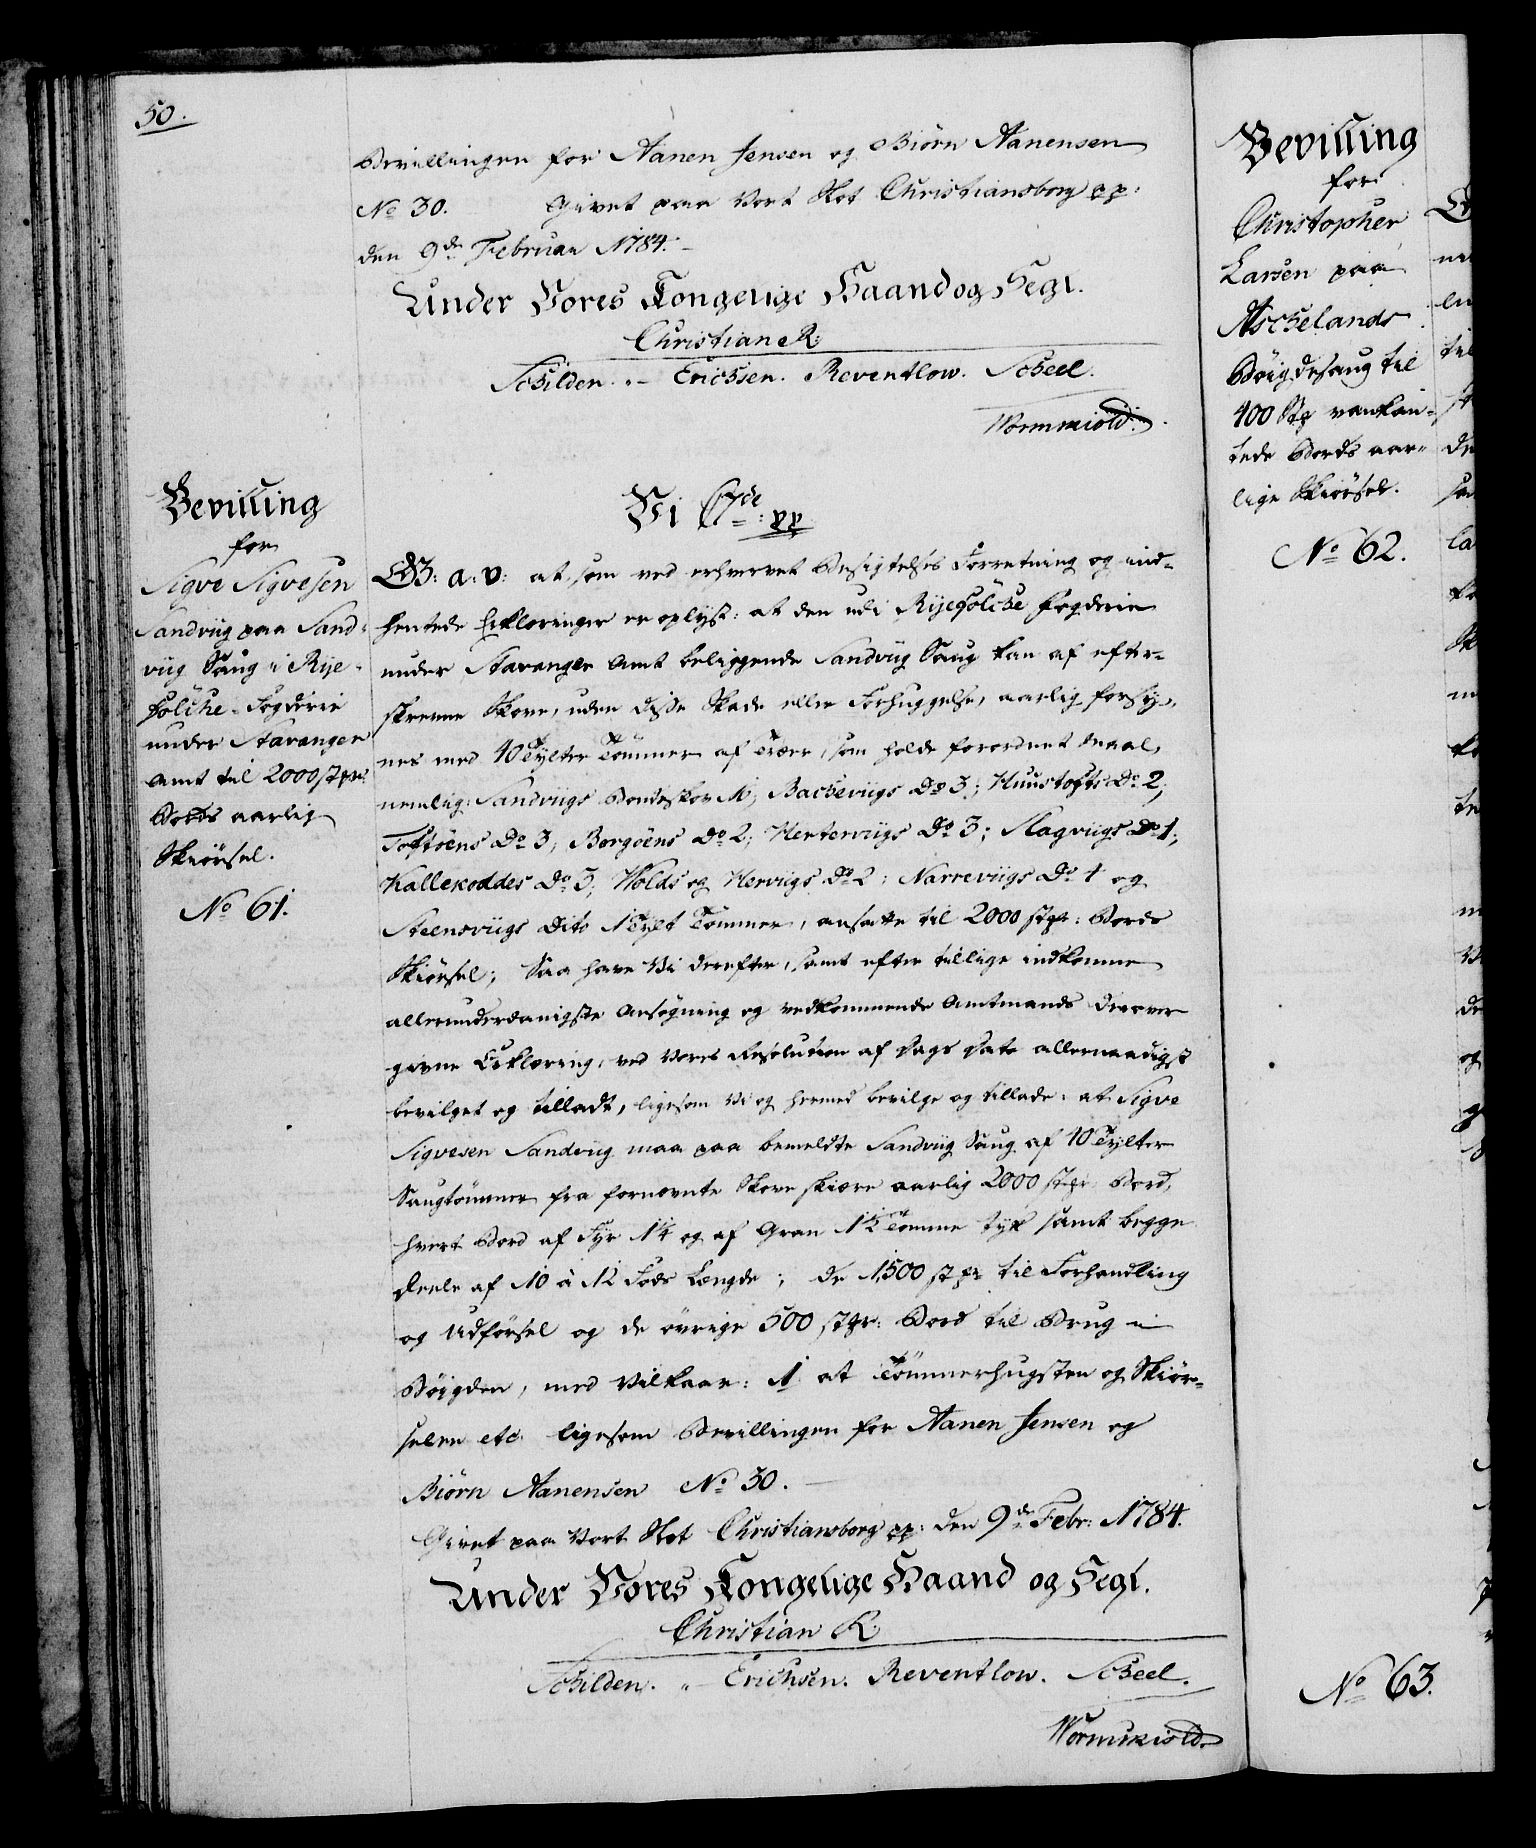 50.
Bevillingen for Aanen Jensen og Biörn Aanensen
No 30. Givet paa Vort Slot Christiansborg pp:
den 9de Februar 1784.
Under Vores Kongelige Haand og Segl.
Christian R:
Schilden. - Erichsen. Reventlow. Scheel.
Wormskiold.
Bevilling
for
Sigve Sigvesen
Sandviig paa Sand-
viig Saug i Rye-
fölche-Fogderie
under Stavanger
Amt til 2000 stkr
Bords aarlig
Skiörsel.
No 61.
Vi C7de pp
G: a: v: at, som ved erhvervet Besigtelses Forretning og ind-
hentede Erklæringer er oplyst: at den udi Ryefölche Fogderie
under Stavanger Amt beliggende Sandviig Saug kan af efter-
skrevne Skove, uden disse Skade eller Forhuggelse, aarlig forsy-
nes med 40 Tylter Tömmer af Træer, som holde forordnet Maal,
nemlig: Sandviigs Bondeskov 14; Bacheviigs Do 3; Hunstofts Do 2;
Toftöens Do 3; Borgöens Do 2; Herterviigs Do 3; Slagviigs Do 1;
Kallekoddes Do 3; Wolds og Herviigs Do 2; Narreviigs Do 1 og
Steensviigs Dito 1 Tylt Tömmer, ansatte til 2000 stkr: Bords
Skiörsel; Saa have Vi derefter, samt efter tillige indkomne
allerunderdanigste Ansögning og vedkommende Amtmands derover
givne Erklæring, ved Vores Resolution af Dags Dato allernaadigst
bevilget og tilladt, ligesom Vi og hermed bevilge og tillade: at Sigve
Sigvesen Sandviig maa paa bemeldte Sandviig Saug af 40 Tylter
Saugtömmer fra fornevnte Skove skiære aarlig 2000 stkr Bord,
hvert Bord af Fyr 1¼ og af Gran 1½ Tomme tyk samt begge
Deele af 10 à 12 Fods Længde; de 1500 stkr til Forhandling
og Udförsel og de övrige 500 stkr: Bord til Brug i
Böigden, med Vilkaar: 1 at Tömmerhugsten og Skiör-
selen etc. ligesom Bevillingen for Aanen Jensen og
Biörn Aanensen No 30.
Givet paa Vort Slot Christiansborg pp: den 9de Febr: 1784.
Under Vores Kongelige Haand og Segl.
Christian R:
Schilden. - Erichsen. Reventlow. Scheel.
Wormskiold.
Bevilling
for
Christopher
Larsen paa
Aschelands
Böigdesaug til
400 Stkr vankan-
tede Bords aar-
lige Skiörsel.
No 62.
No 63.